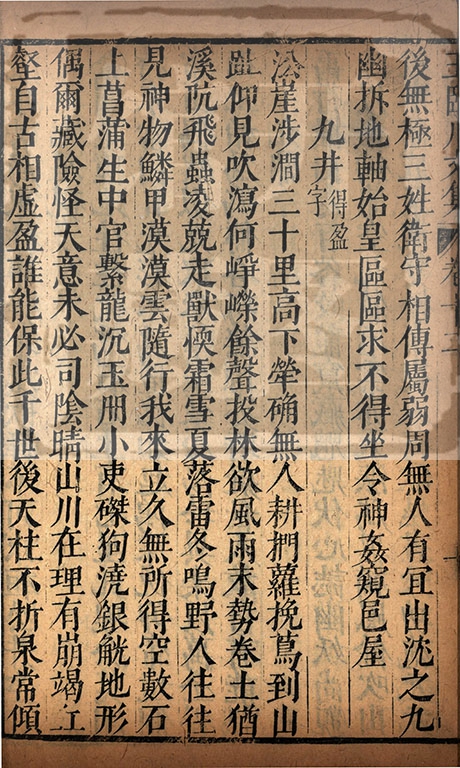 王臨川文集 卷十
後無極三姓衛守相傳屬弱周無人有宜出沈之九
幽拆地軸始皇區區求不得坐令神姦窺邑屋
九井得盈字
㳂崖涉澗三十里高下犖确無人耕捫蘿挽蔦到山
趾仰見吹瀉何崢嶸餘聲投林欲風雨末勢卷土猶
溪阬飛蟲凌兢走獸慄霜雪夏落雷冬鳴野人往往
見神物鱗甲漠漠雲隨行我來立久無所得空數石
上菖蒲生中官繫龍沉玉冊小吏磔狗澆銀觥地形
偶爾藏險怪天意未必司陰晴山川在理有崩竭丘
壑自古相虛盈誰能保此千世後天柱不折泉常傾